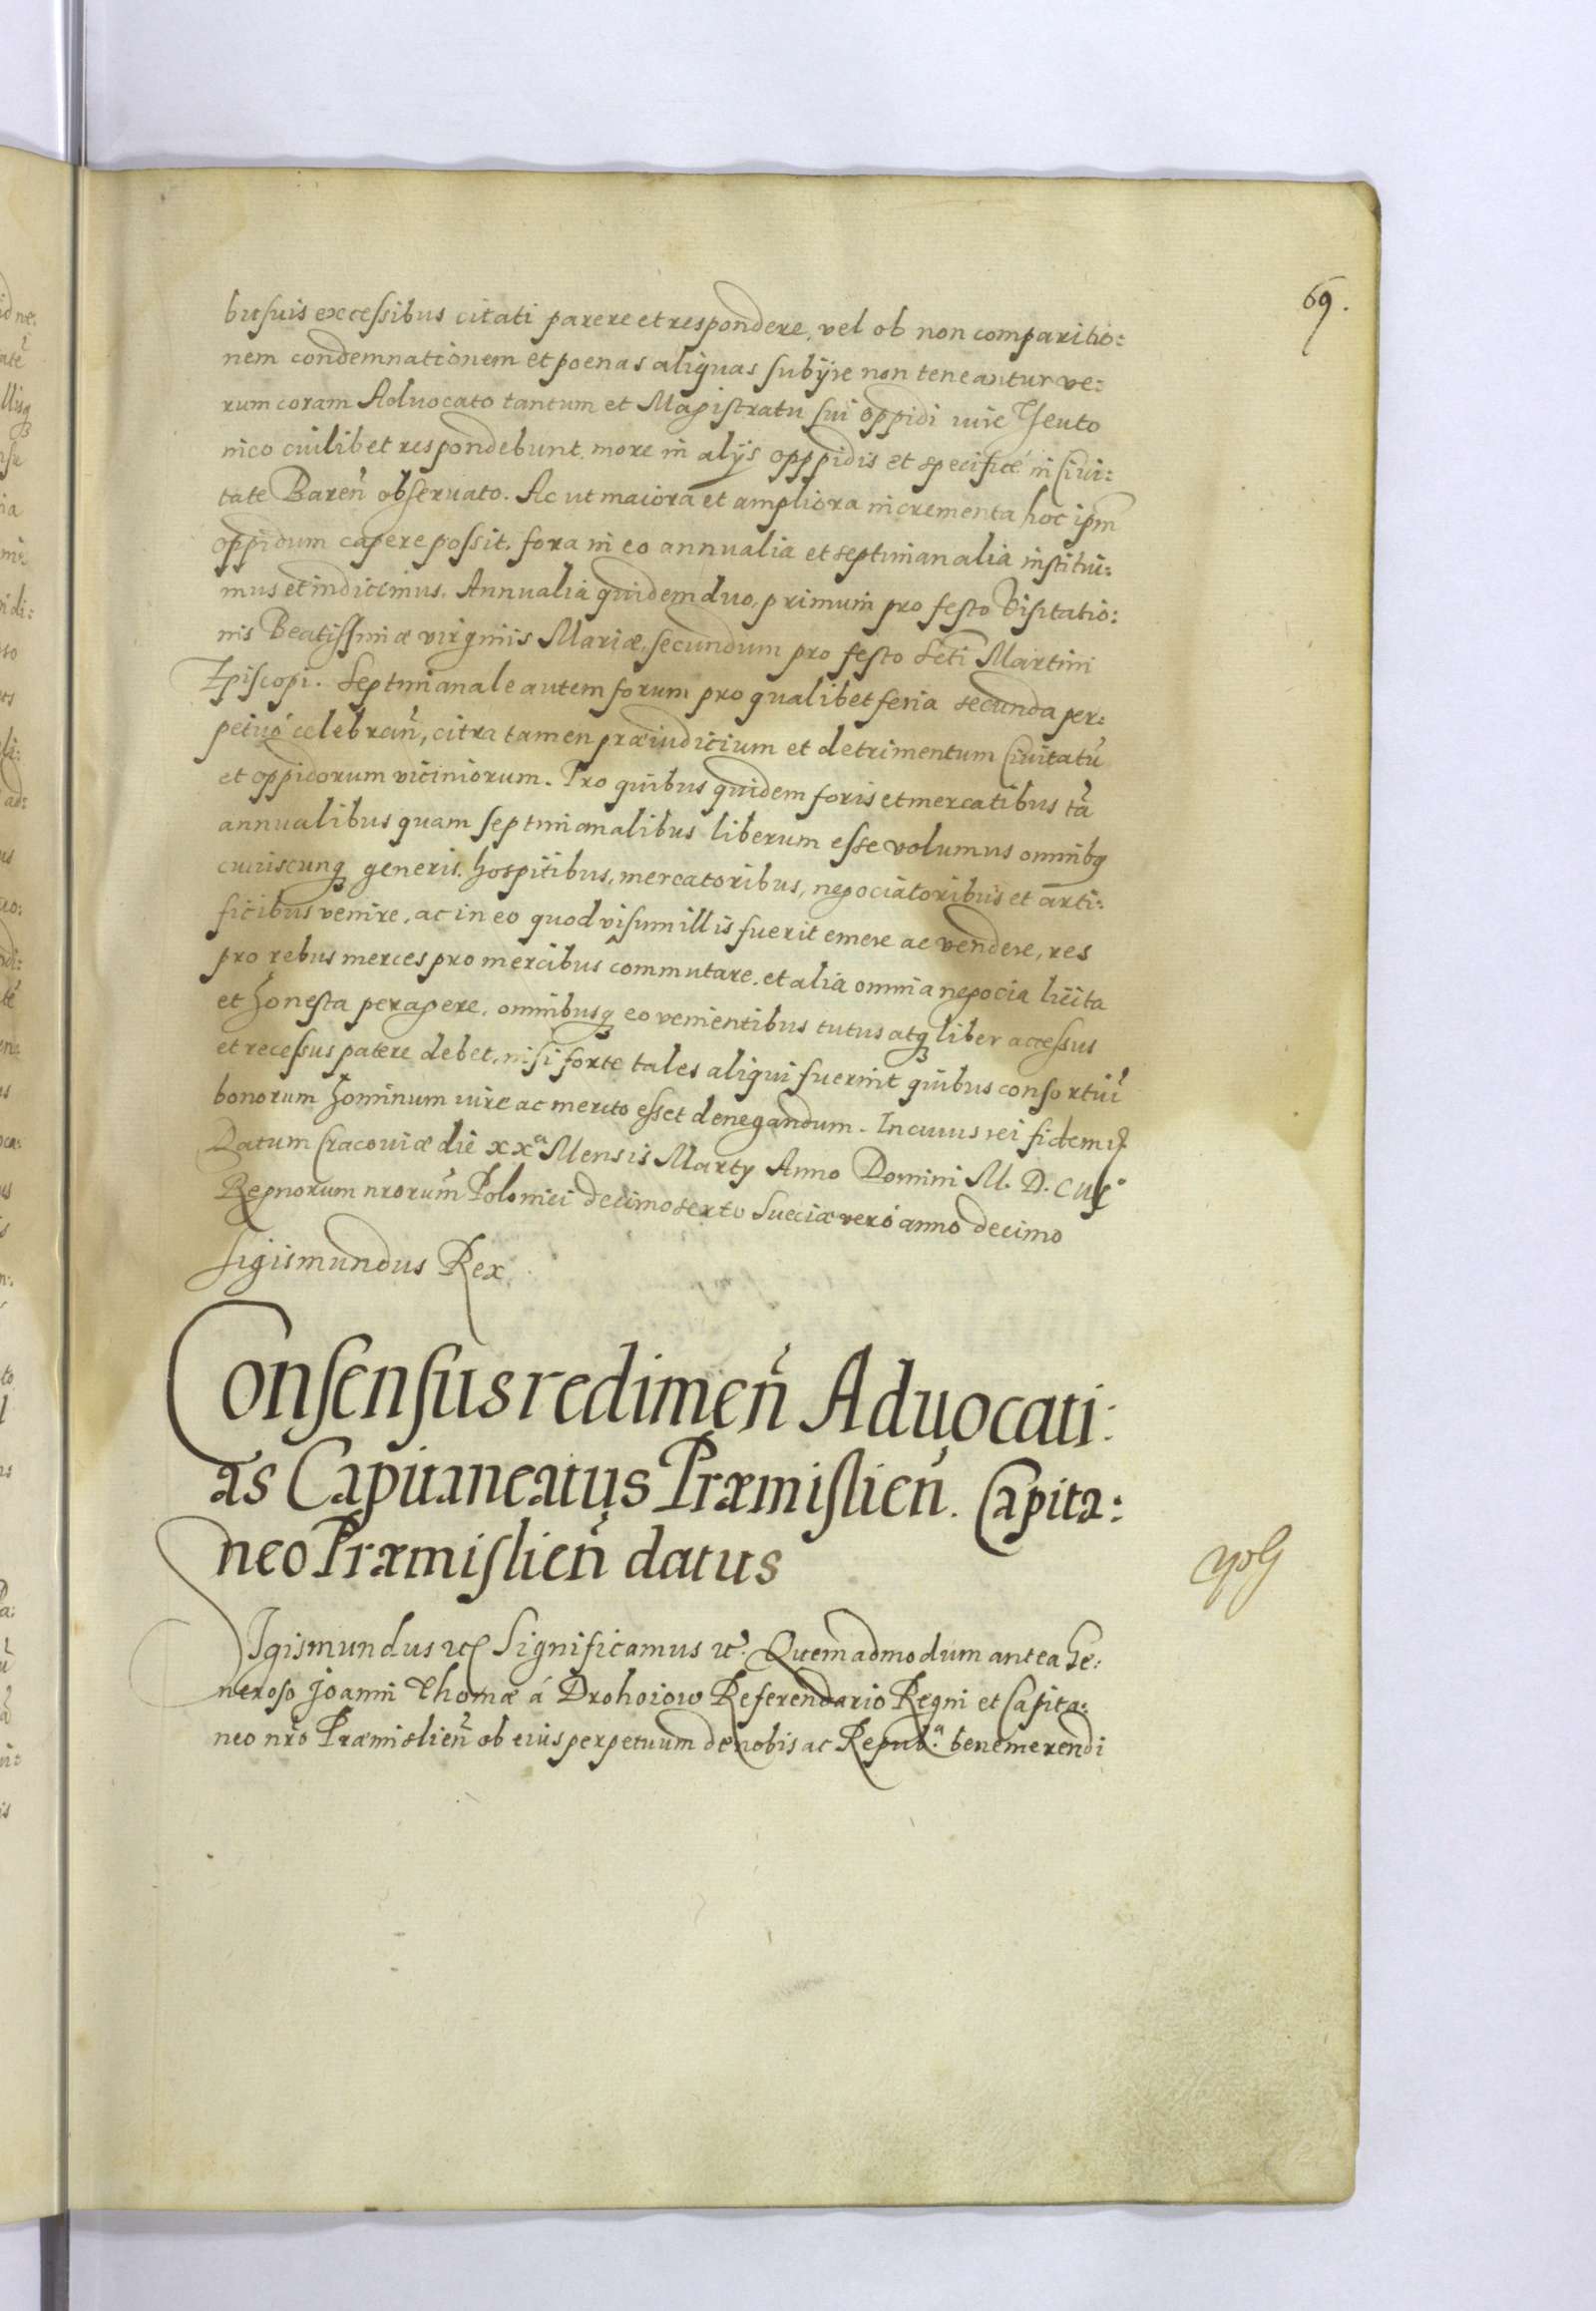 69.
bus suis excessibus citati parere et respondere, vel ob non comparitio:
nem condemnationem et poenas aliquas subijre non teneantur ve:
rum coram Aduocato tantum et Magistratu sui oppidi iure Theuto
nico cuilibet respondebunt. more in alijs opppidis et specificé in Ciui:
tate Bareñ obseruato. Ac ut maiora et ampliora incrementa hoc ipm̃
oppidum capere possit. fora in eo annualia et septimanalia institui:
mus et indicimus. Annualia quidem duo, primum pro festo Visitatio:
nis Beatissimæ virginis Mariæ, secundum pro festo Scti Martini
Episcopi. Septimanale autem forum pro qualibet feria secunda per:
petuó celebrañ, citra tamen præiudicium et detrimentum Ciuitatũ
et oppidorum viciniorum. Pro quibus quidem foris et mercatibus tã
annualibus quam septimanalibus liberum esse volumus omnibq
cuiuscunq generis. hospitibus, mercatoribus, negociatoribus et arti:
ficibus venire, ac in eo quod visum illis fuerit emere ac vendere, res
pro rebus merces pro mercibus commutare, et alia omnia negocia licita
et honesta peragere, omnibusq eo venientibus tutus atq liber accessus
et recessus patere debet, nisi forte tales aliqui fuerint quibus consortiũ
bonorum hominum iure ac merito esset denegandum. In cuius rei fidem
Datum Cracouiæ die xxª Mensis Martij Anno Domini M. D.
Regnorum nrorum̃ Poloniei decimosexto Sueciæ veró anno decimo
Sigismundus Rex.
Consensus redimeñ Aduocati:
as Capitaneatus Præmislieñ. Capita:
neo Præmislieñ datus
SIgismundus etc Significamus etc. Quemadmodum antea Ge:
neroso Joanni Thomæ á Drohoiow Referendario Regni et Capita:
neo nrõ Præmislieñ ob eius perpetuum de nobis ac Repub.ª benemerendi